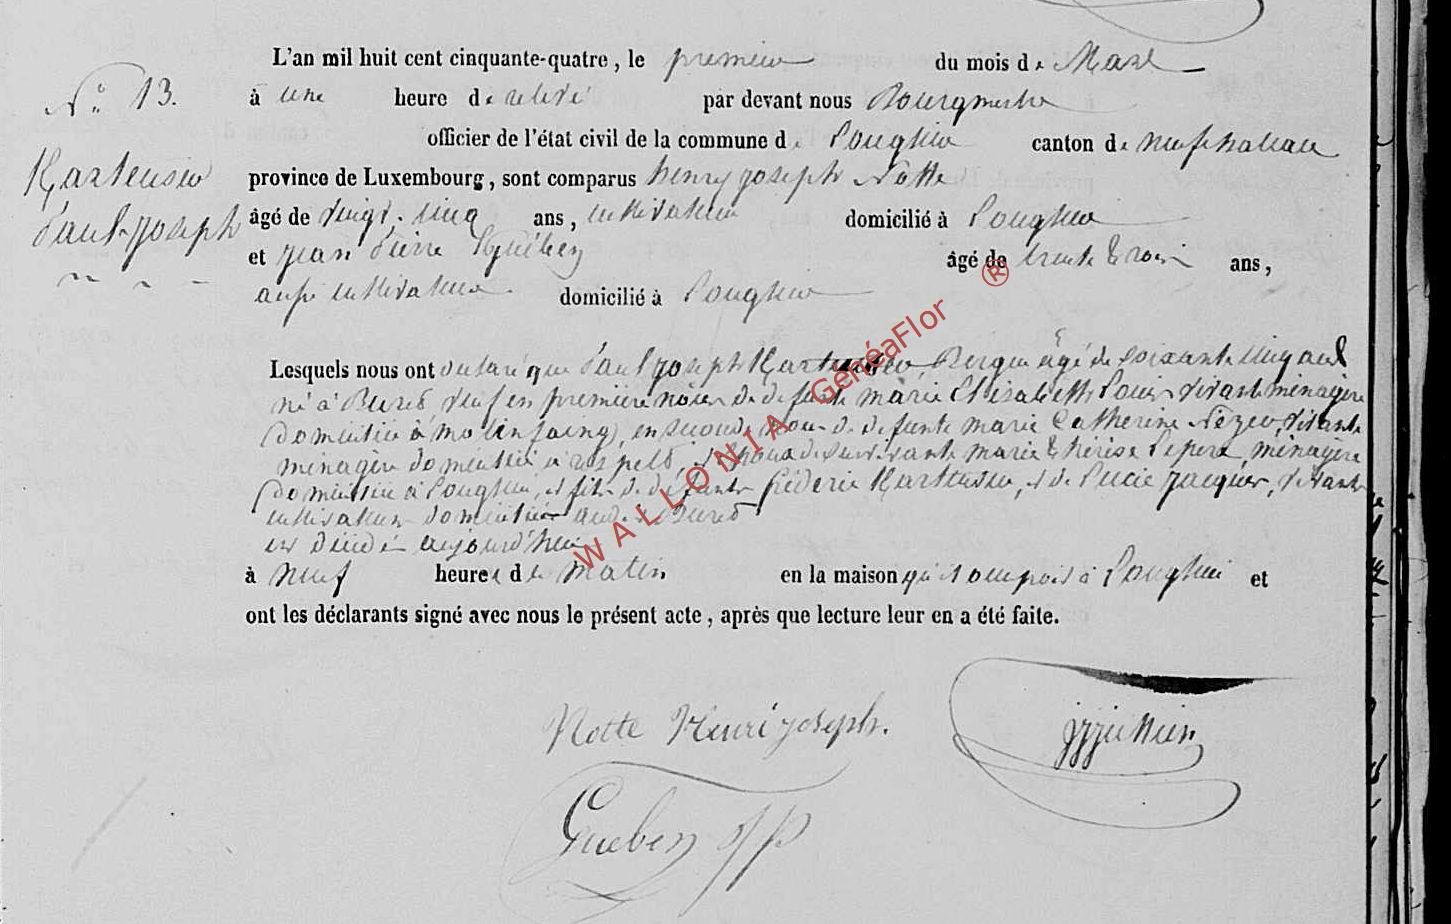 L'an mil huit cent cinquante-quatre, le premier du mois de Mars
N° 13. à une heure de relevé par devant nous Bourgmestre
officier de l'état civil de la commune de Longlier canton de neufchateau
Karteusier province de Luxembourg, sont comparus henry joseph Notte
Paul-Joseph âgé de vingt-cinq ans, cultivateur domicilié à Longlier
et jean Pierre Guében âgé de trente trois ans,
aussi cultivateur domicilié à Longlier
Lesquels nous ont déclaré que Paul joseph Berger âgé de soixante cinq ans
né à Buret veuf en première noces de defunte marie Elisabeth vivante ménagère
domiciliée à molinfaing, en seconde noce de defunte marie Catherine vivante
ménagère domiciliée à respelt, et époux de survivante marie thérèse ménagère
domiciliée à Longlier, et fils de défunts fréderic et de Lucie jacques, vivants
cultivateurs domiciliés audit Buret
est décédé aujourd'hui
à neuf heures du matin en la maison qu'il occupoit à Longlier et
ont les déclarants signé avec nous le présent acte, après que lecture leur en a été faite.
Notte Henri joseph.
Gueben JP
WALLONIA GénéaFlor ®